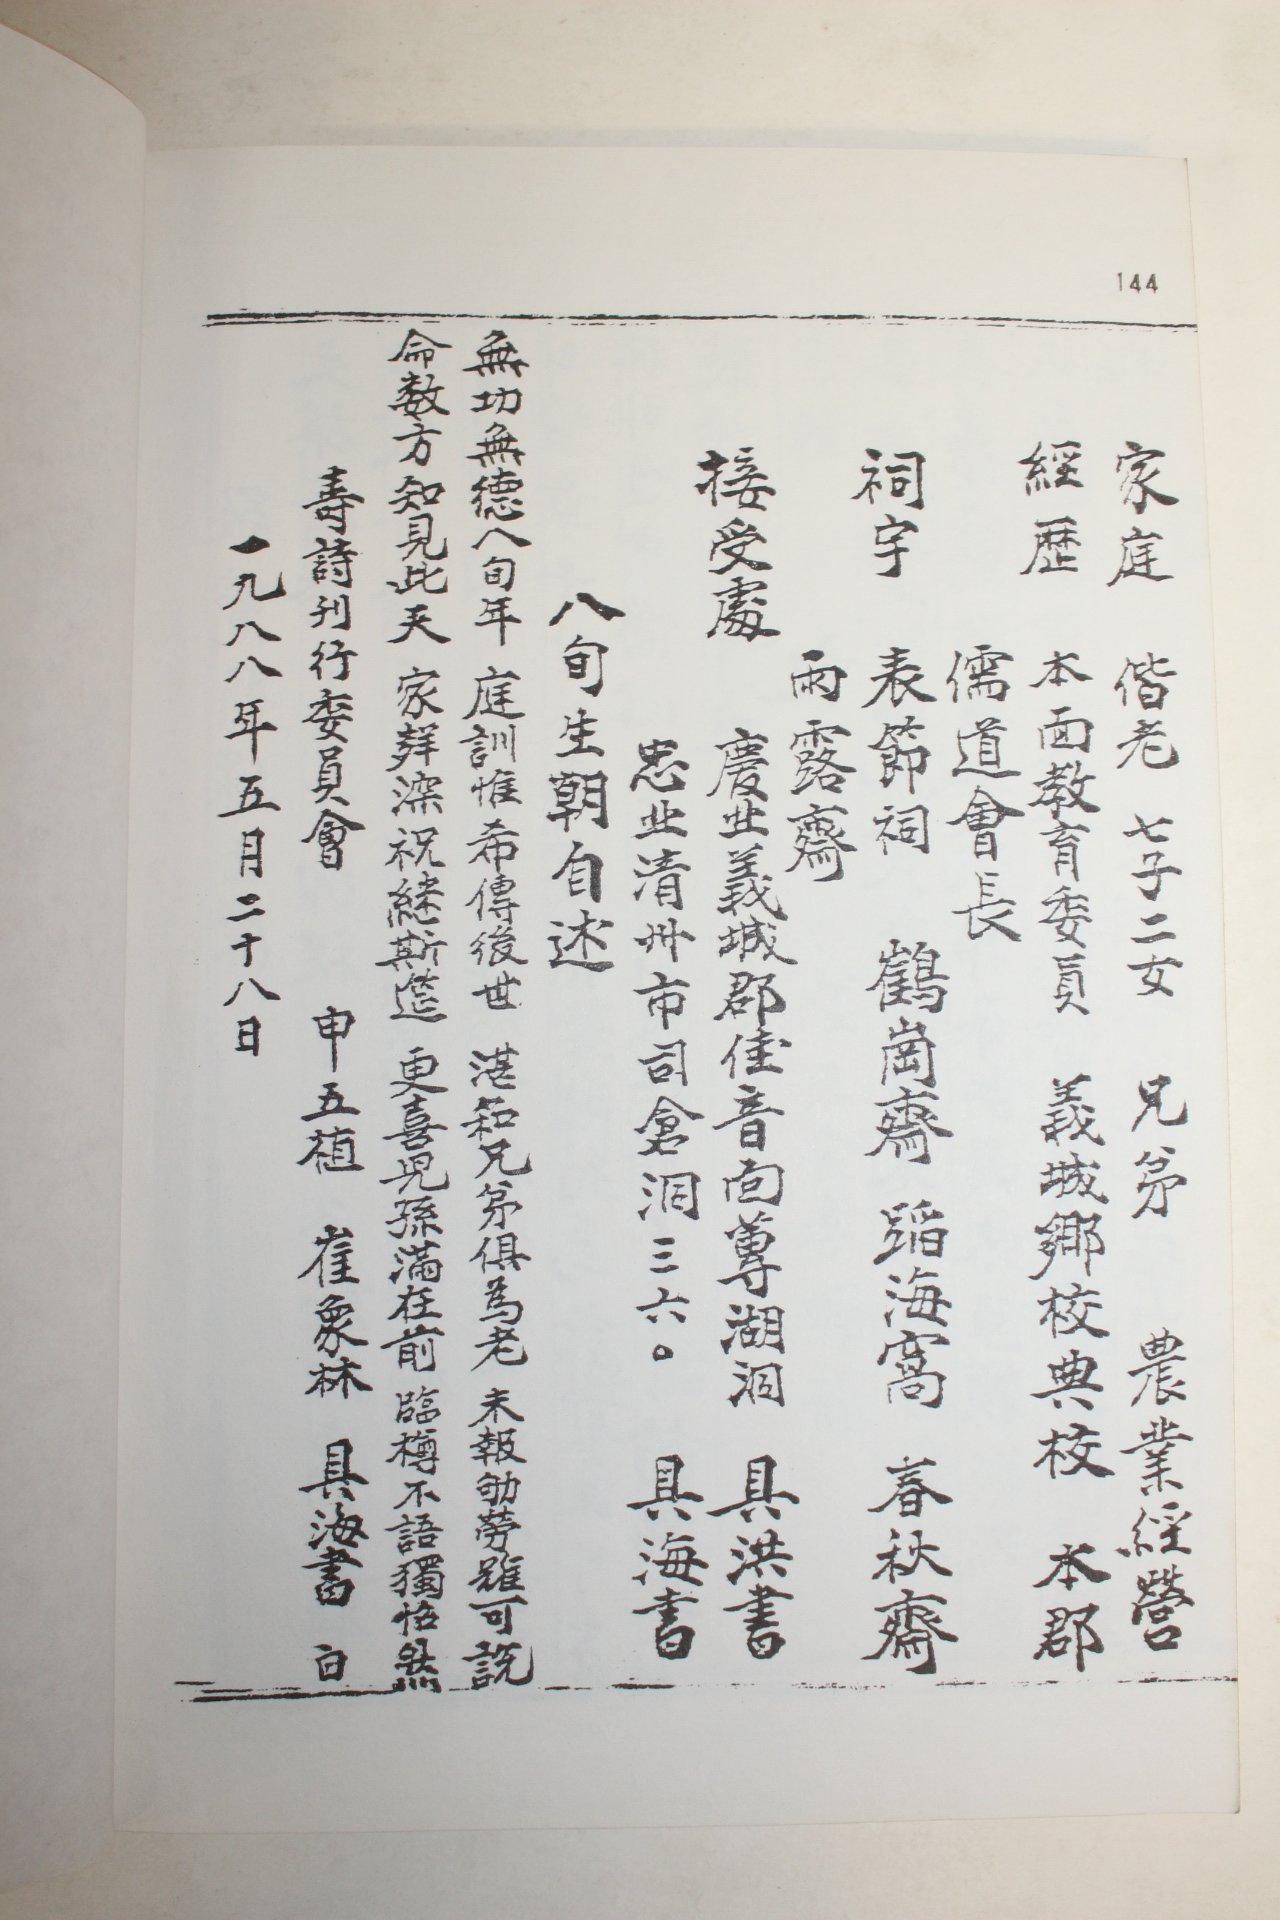 144
家庭 偕老 七子二女 兄弟 農業經營
經歷 本面教育委員 義城鄉校典校 本郡
儒道會長
祠宇 表節祠 鶴崗齋 蹈海窩 春秋齋
雨露齋
接受處 慶北義城郡佳音面尊湖洞 具洪書
忠北清州市司倉洞三六〇 具海書
八旬生朝自述
無功無德八旬年 庭訓惟希傳後世 湛和兄弟俱為老 未報劬勞難可說
命数方知見此天 家群深祝繼斯筵 更喜児孫滿在前 臨樽不語獨悟然
壽詩刊行委員會 申五植 崔象林 具海書 白
一九八八年五月二十八日